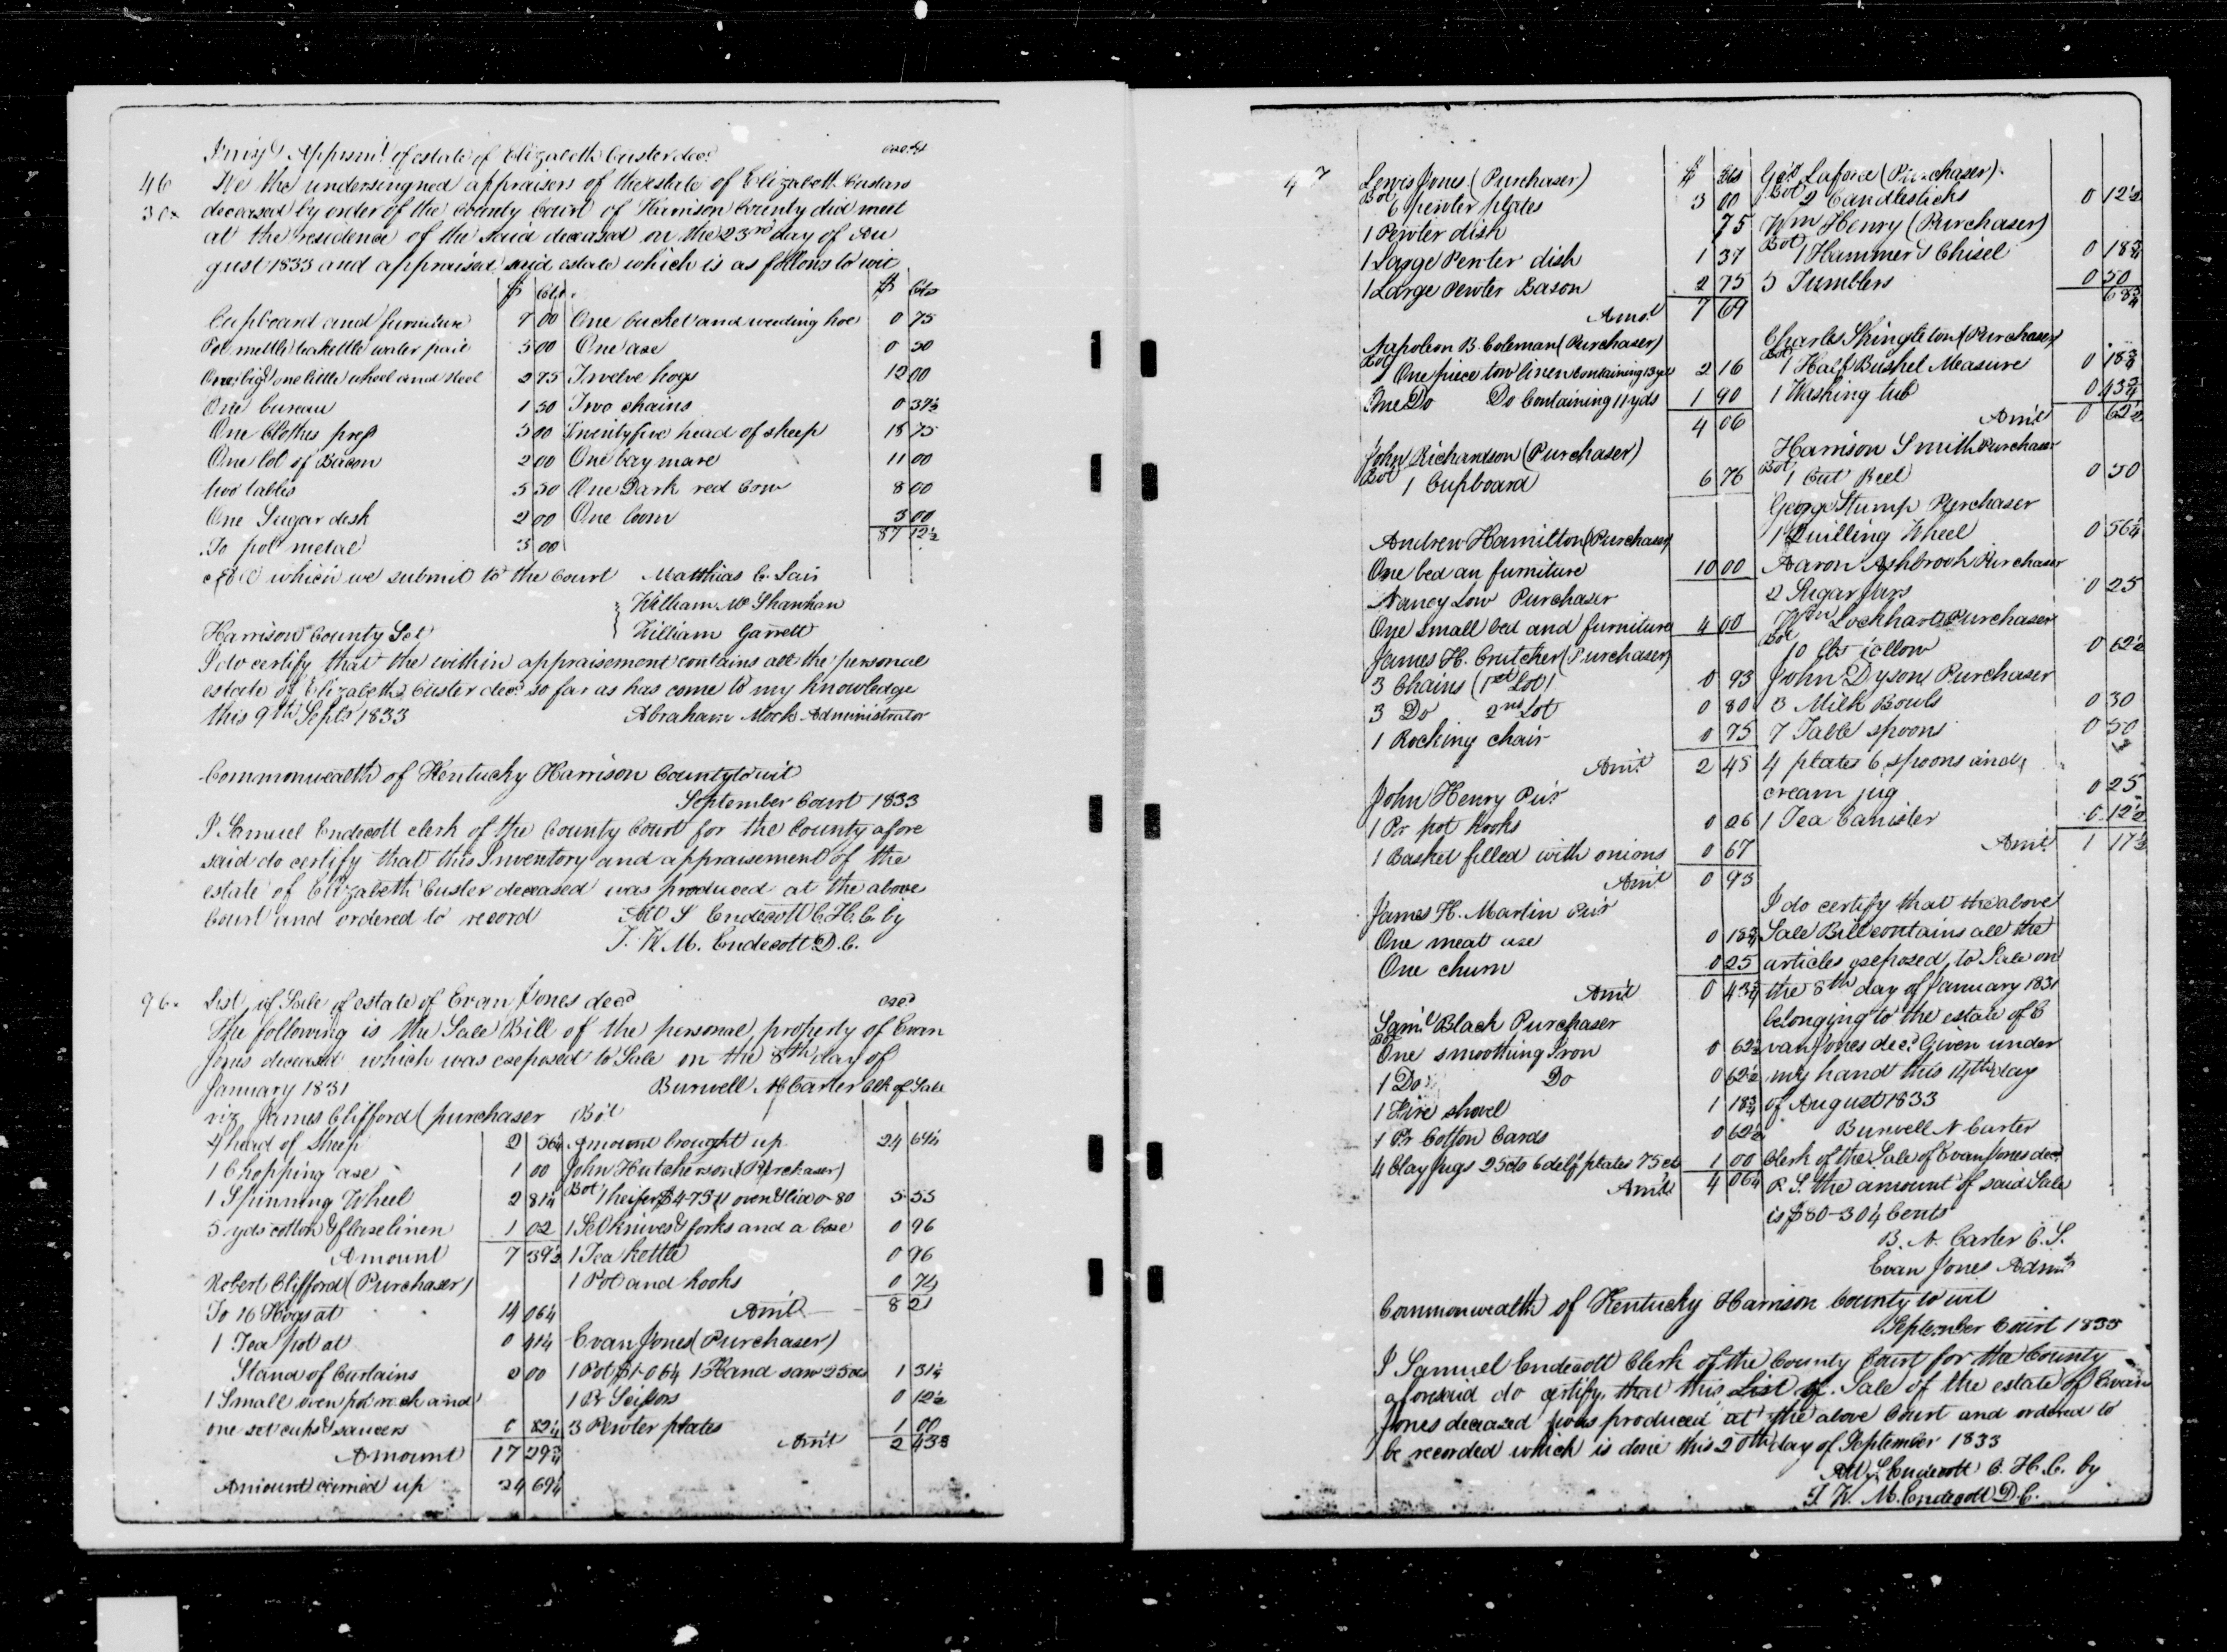 Inv. & Apprsmt. of estate of Elizabeth Custer decd.
46 We the undersingned appraisers of the estate of Elizabeth Custard
deceased by order of the County Court of Harrison County did meet
at the residence of the said deceased on the 23rd day of Au
gust 1833 and appraised said estate which is as follows to wit
$ Cts $ Cts
Cupboard and furniture 7 00 One bucket and weeding hoe 0 75
Pot mettle teakettle water pail 3 00 One axe 0 50
One big one little wheel and reel 2 75 Twelve hogs 12 00
One bureau 1 50 Two chains 0 37½
One Clothes press 5 00 Twenty five head of sheep 18 75
One lot of Bacon 2 00 One bay mare 11 00
two tables 5 50 One Dark red Cow 8 00
One Sugar desk 2 00 One loom 3 00
To pot metal 3 00 87 12½
which we submit to the Court Matthias C. Lair
William McShanhan
Harrison County Sct William Garrett
I do certify that the within appraisement contains all the personal
estate of Elizabeth Custer decd so far as has come to my knowledge
this 9th Septr 1833 Abraham Mock Administrator
Commonwealth of Kentucky Harrison County to wit
September Court 1833
I Samuel Endecott clerk of the County Court for the County afore
said do certify that this Inventory and appraisement of the
estate of Elizabeth Custer deceased was produced at the above
Court and ordered to record Att S Endecott C.H.C. by
T. W. M. Endecott D.C.
96 List of Sale of estate of Evan Jones decd exd
The following is the Sale Bill of the personal property of Evan
Jones deceased which was exposed to Sale on the 8th day of
January 1831 Burwell N Carter Clk of Sale
viz James Clifford (purchaser Bot
4 head of Sheep 2 56¼ Amount brought up 24 69¼
1 Chopping axe 1 00 John Hutcherson (Purchaser)
1 Spinning Wheel 2 81¼ Bot 1 heifer $4-75 1 oven & lid 0-80 5 55
5 yds cotton & flaxe linen 1 02 1 Set knives & forks and a Case 0 96
Amount 7 39½ 1 Tea kettle 0 96
Robert Clifford (Purchaser) 1 Pot and hooks 0 74
To 16 Hogs at 14 06¼ Amt 8 21
1 Tea pot at 0 41¼ Evan Jones (Purchaser)
Stand of Curtains 2 00 1 Pot $1-06¼ 1 Hand saw 25cts 1 31¼
1 Small oven pot rack and 1 Pr Scissors 0 12½
one set cups & saucers 0 82¼ 3 Pewter plates 1 00
Amount 17 29¾ Amt 2 43¾
Amount carried up 24 69¼
47 Lewis Jones (Purchaser) $ Cts
Bot 6 pewter plates 3 00
1 Pewter dish 75
1 Large Pewter dish 1 37
1 Large Pewter Bason 2 75
Amot 7 69
Napoleon B. Coleman (Purchaser)
Bot One piece tow linen Containing 13 yds 2 16
One Do Do Containing 11 yds 1 90
4 06
John Richardson (Purchaser)
Bot 1 Cupboard 6 76
Andrew Hamilton (Purchaser)
One bed an furniture 10 00
Nancy Low Purchaser
One small bed and furniture 4 00
James H. Crutcher (Purchaser)
3 Chains (1st Lot) 0 93
3 Do 2nd Lot 0 80
1 Rocking chair 0 75
Amt 2 48
John Henry Pur
1 Pr pot hooks 0 26
1 Basket filled with onions 0 67
Amt 0 93
James H. Martin Pur
One meat axe 0 18¾
One churn 0 25
Amt 0 43¾
Saml Black Purchaser
Bot One smoothing Iron 0 62½
1 Do Do 0 62½
1 Fire shovel 1 18¾
1 Pr Cotton Cards 0 62½
4 Clay Jugs 25cts 6 delf plates 75 cts 1 00
Amt 4 06¼
Laforce (Purchaser)
Bot 2 Candlesticks 0 12½
Wm Henry (Purchaser)
Bot 1 Hammer & Chisel 0 18¾
5 Tumblers 0 50
68¾
Charles Shingleton (Purchaser)
Bot 1 Half Bushel Measure 0 18¾
1 Washing tub 0 43¾
Amt 0 62½
Harrison Smith Purchaser
Bot 1 Cut Reel 0 50
George Stump Purchaser
1 Quilling Wheel 0 56¼
Aaron Ashbrook Purchaser
2 Sugar Jars 0 25
Wm Lockhart Purchaser
Bot 10 lbs tallow 0 62½
John Dyson Purchaser
3 Milk Bowls 0 30
7 Table spoons 0 50
4 plates 6 spoons and
cream jug 0 25
1 Tea Canister 0 12½
Amt 1 17½
I do certify that the above
Sale Bill contains all the
articles exposed to Sale on
the 8th day of January 1831
belonging to the estate of E
van Jones decd Given under
my hand this 14th day
of August 1833
Burwell N Carter
Clerk of the Sale of Evan Jones decd
P.S. the amount of said Sale
is $80-30¼ Cents
B. N. Carter C.S.
Evan Jones Admr
Commonwealth of Kentucky Harrison County to wit
September Court 1833
I Samuel Endecott Clerk of the County Court for the County
aforesaid do certify that this List of Sale of the estate of Evan
Jones deceased was produced at the above Court and ordered to
be recorded which is done this 20th day of September 1833
Att S Endecott C.H.C. by
T. W. M. Endecott D.C.